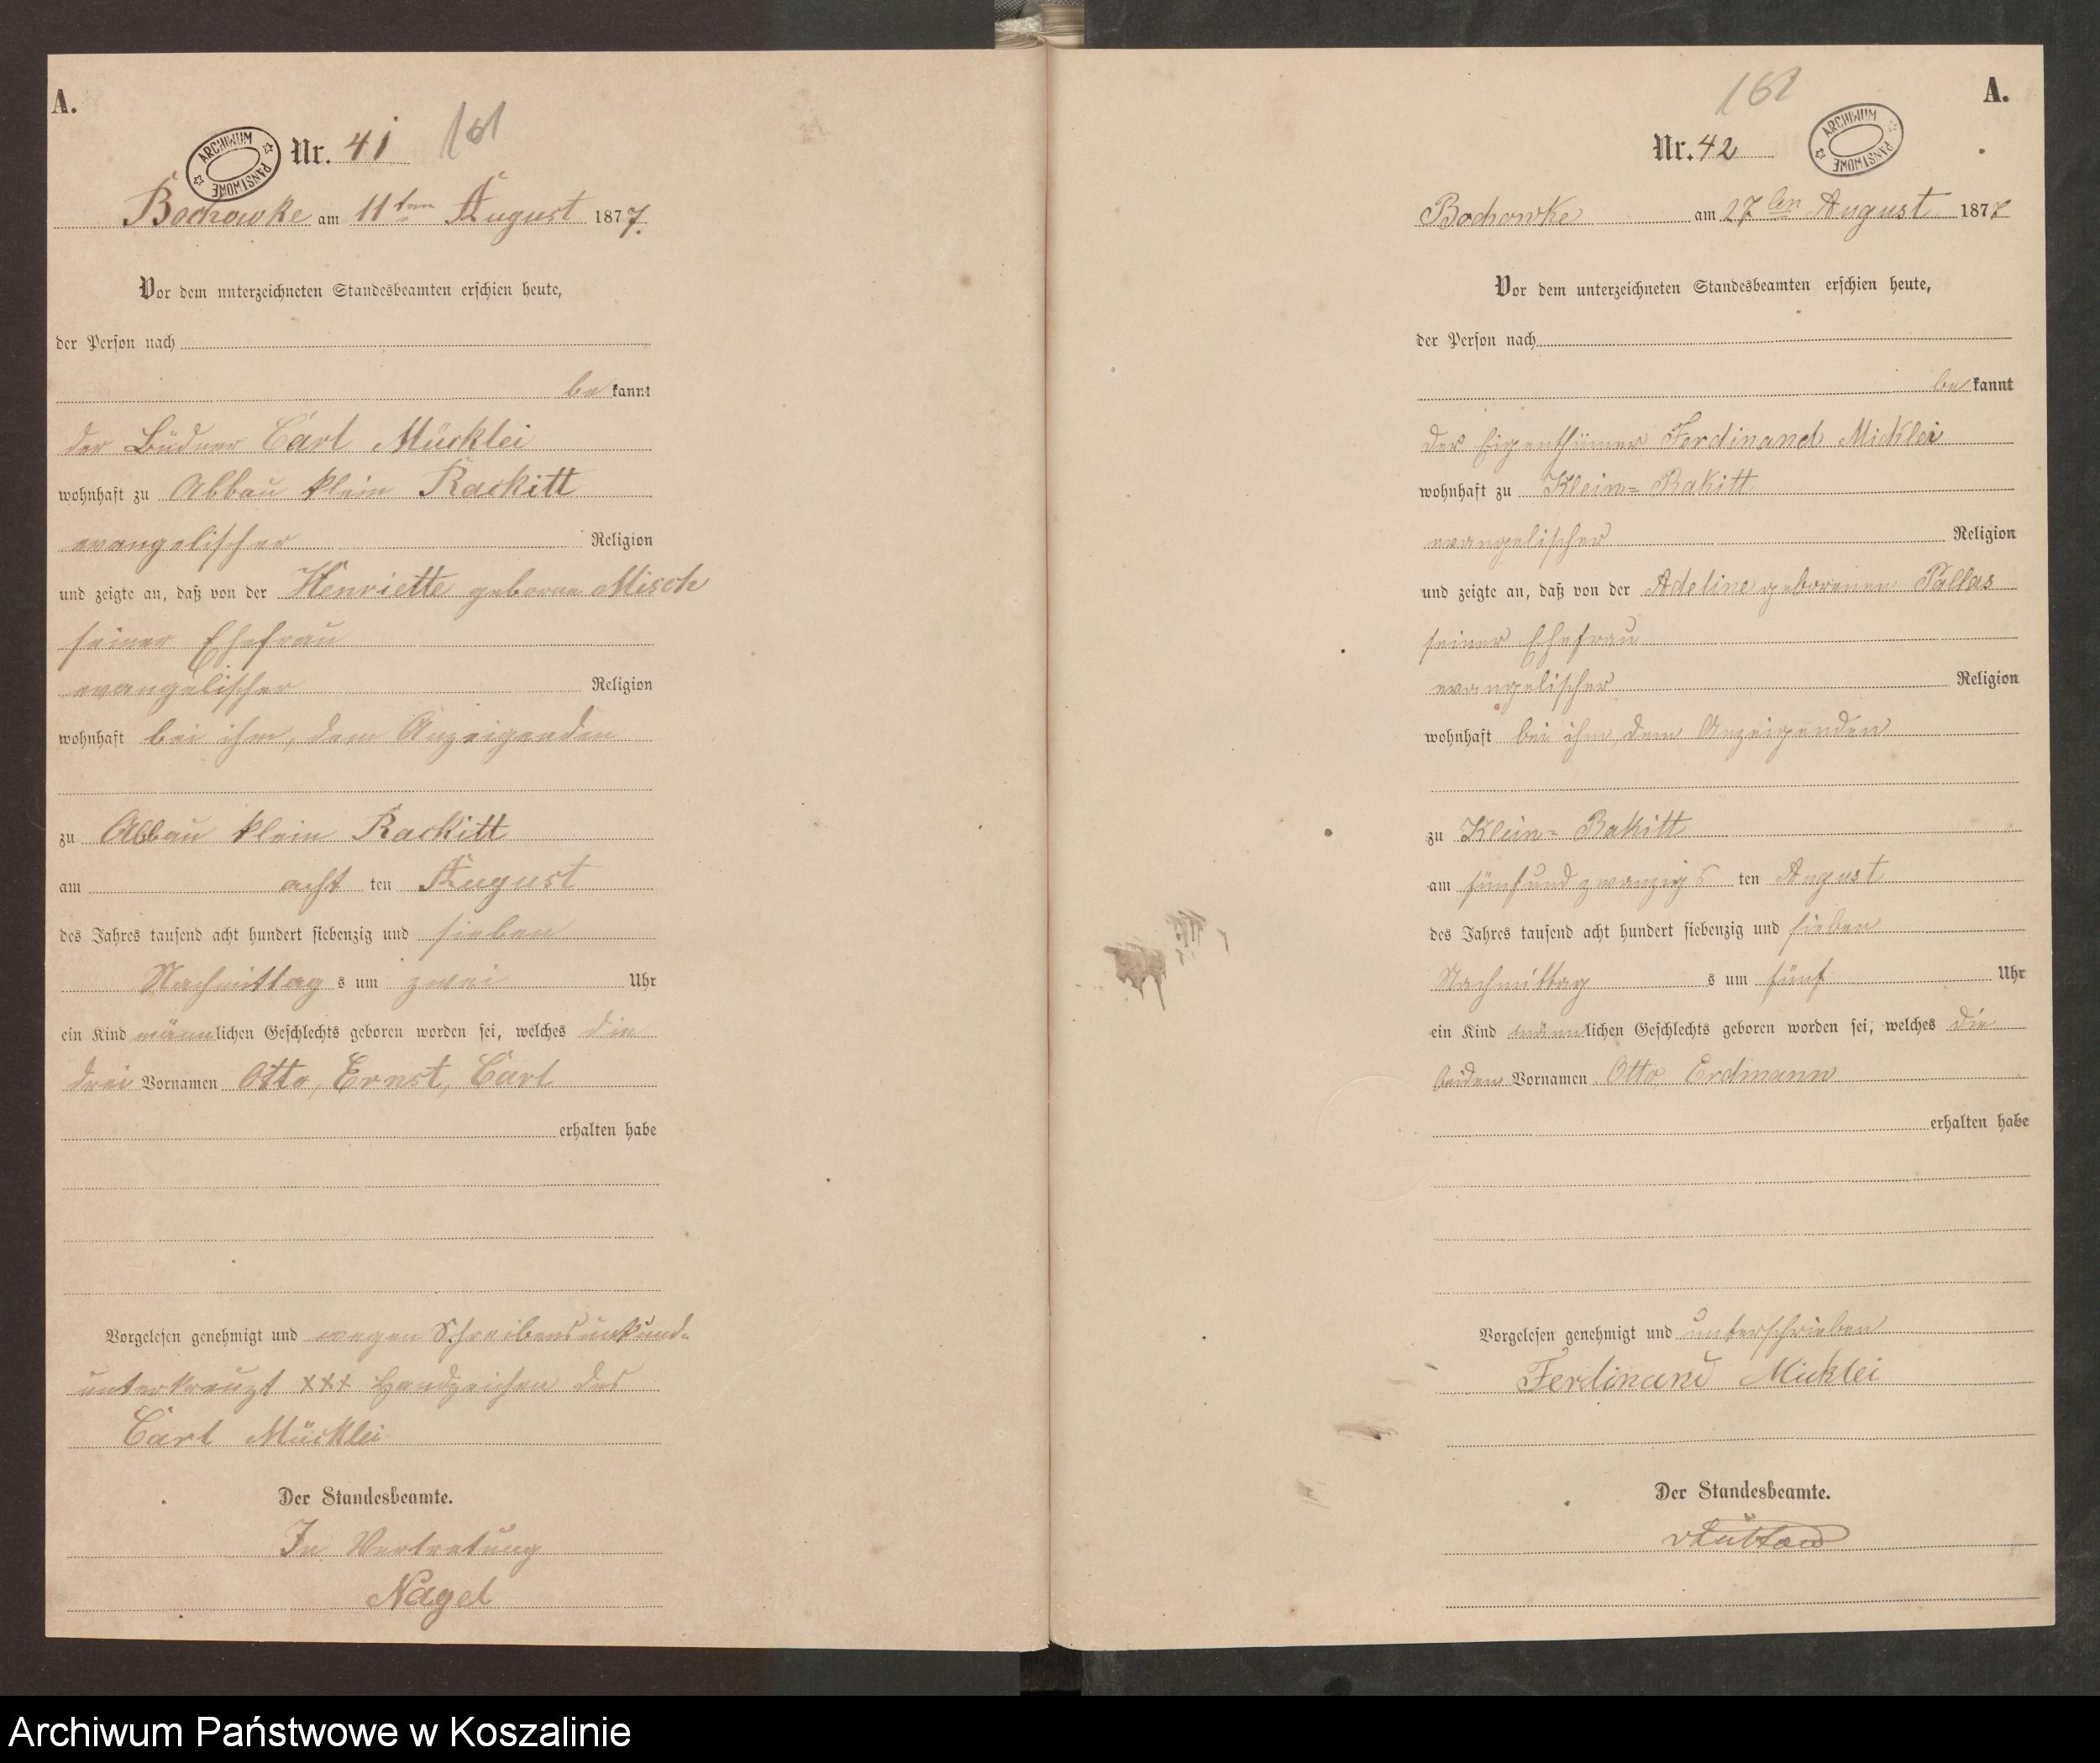 A.
ARCHIWUM PAŃSTWOWE
Nr. 41 161
Bochowke am 11ten August 1877.
Vor dem unterzeichneten Standesbeamten erschien heute,
der Person nach
be kannt
der Büdner Carl Mücklei
wohnhaft zu Abbau klein Rackitt
evangelischer Religion
und zeigte an, daß von der Henriette geborne Misch
seiner Ehefrau
evangelischer Religion
wohnhaft bei ihm, dem Anzeigenden
zu Abbau klein Rackitt
am acht ten August
des Jahres tausend acht hundert siebenzig und sieben
Nachmittag s um zwei Uhr
ein Kind männlichen Geschlechts geboren worden sei, welches die
drei Vornamen Otto, Ernst, Carl
erhalten habe
Vorgelesen genehmigt und wegen Schreibensunkund-
unterkreuzt +++ Handzeichen des
Carl Mücklei
Der Standesbeamte.
In Vertretung
Nagel
162 A.
Nr. 42
ARCHIWUM PAŃSTWOWE
Bochowke am 27ten August 1877
Vor dem unterzeichneten Standesbeamten erschien heute,
der Person nach
be kannt
der Eigenthümer Ferdinand Micklei
wohnhaft zu Klein= Rakitt
evangelischer Religion
und zeigte an, daß von der Adeline geborenen Pallas
seiner Ehefrau
evangelischer Religion
wohnhaft bei ihm, dem Anzeigenden
zu Klein= Rakitt
am fünfundzwanzigs ten August
des Jahres tausend acht hundert siebenzig und sieben
Nachmittag s um fünf Uhr
ein Kind männlichen Geschlechts geboren worden sei, welches die
beiden Vornamen Otto, Erdmann
erhalten habe
Vorgelesen genehmigt und unterschrieben
Ferdinand Micklei
Der Standesbeamte.
Archiwum Państwowe w Koszalinie